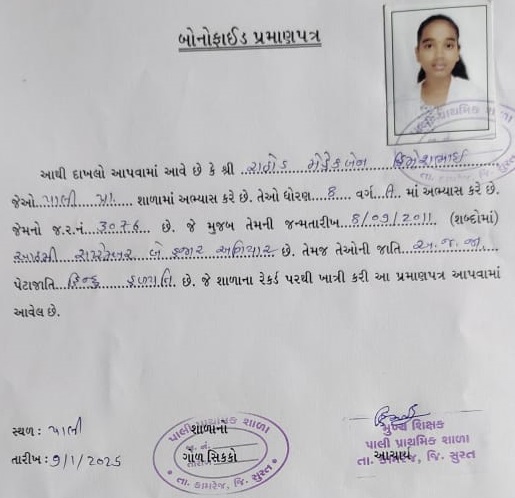 બોનોફાઈડ પ્રમાણપત્ર
પાલી પ્રાથમિક શાળા
તા. કામરેજ, જિ. સુરત
આથી દાખલો આપવામાં આવે છે કે શ્રી રાઠોડ
જેઓ પાલી પ્રા. શાળામાં અભ્યાસ કરે છે. તેઓ ધોરણ 8 વર્ગ માં અભ્યાસ કરે છે.
જેમનો જ.ર.નં. 3076 છે. જે મુજબ તેમની જન્મતારીખ 8/09/2011 (શબ્દોમાં)
આઠમી સપ્ટેમ્બર બે હજાર અગિયાર છે. તેમજ તેઓની જાતિ અ.જ.જા.
પેટાજાતિ હિન્દુ હળપતિ છે. જે શાળાના રેકર્ડ પરથી ખાત્રી કરી આ પ્રમાણપત્ર આપવામાં
આવેલ છે.
સ્થળ : પાલી
તારીખ : 9/1/2025
પાલી પ્રાથમિક શાળા
શાળાનો
ગોળ સિક્કો
તા. કામરેજ, જિ. સુરત
મુખ્ય શિક્ષક
પાલી પ્રાથમિક શાળા
આચાર્ય
તા. કામરેજ, જિ. સુરત